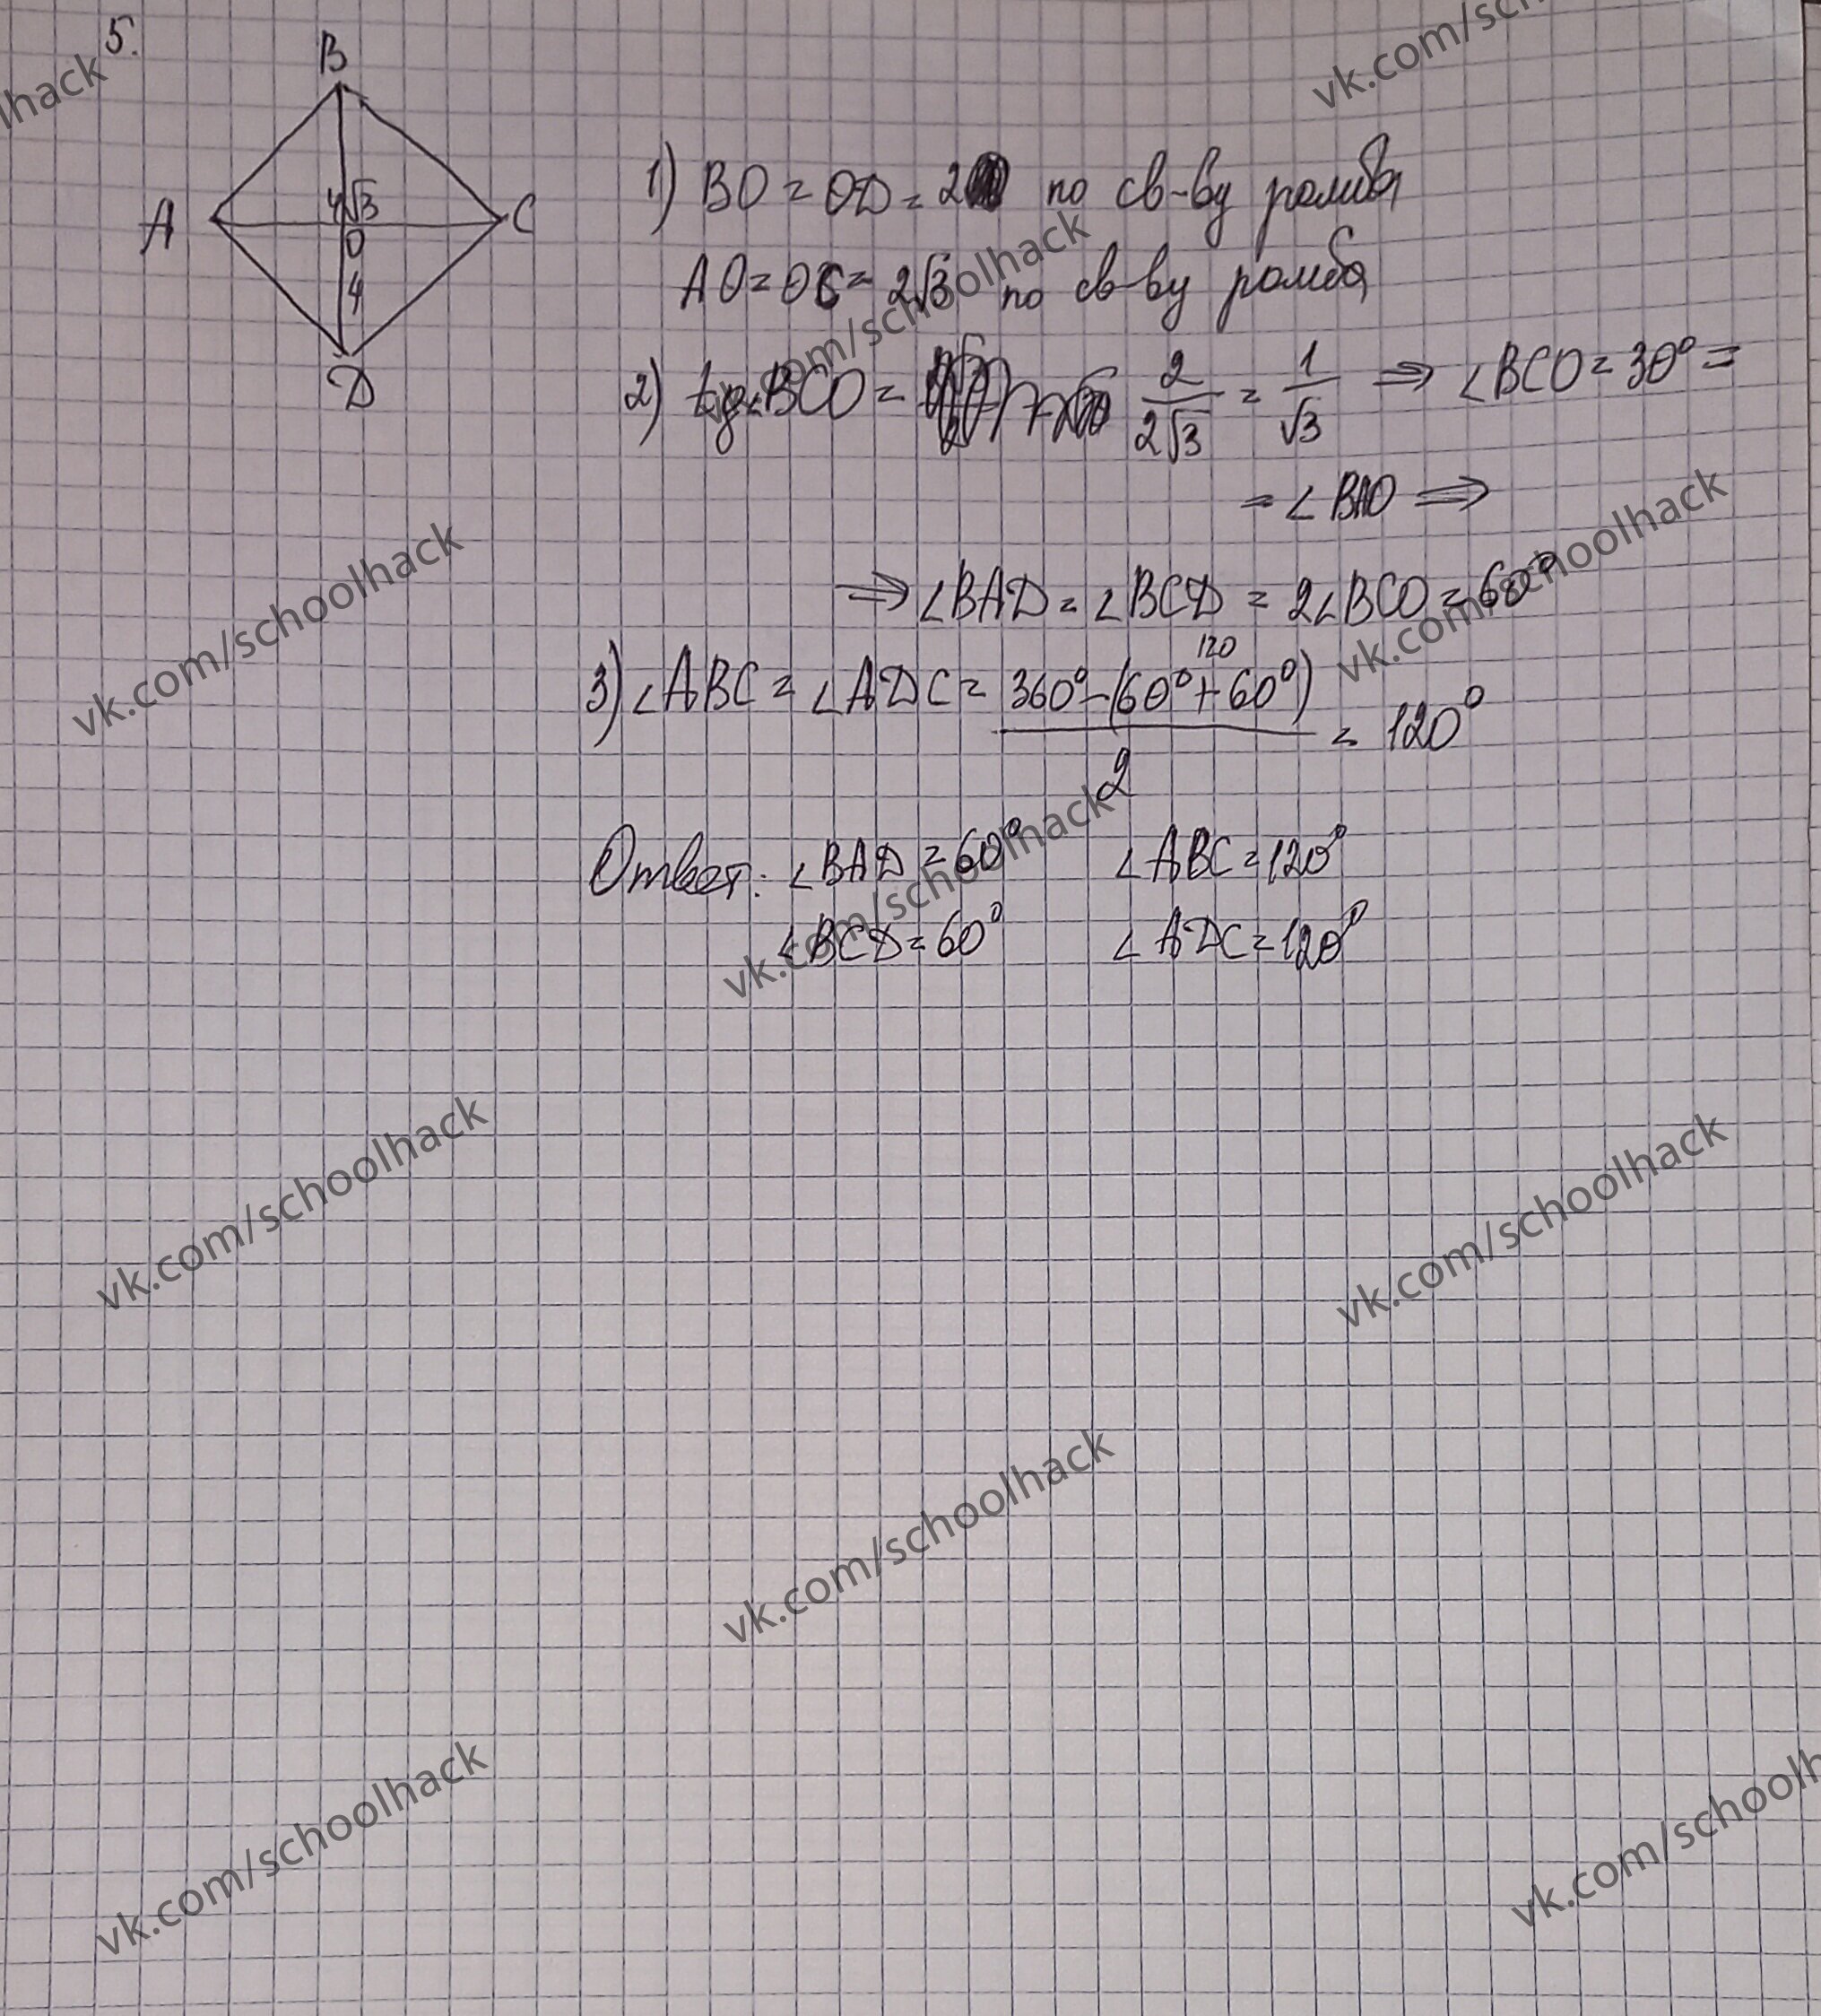 5.
B
A
4√3
C
O
4
D
1) BO = OD = 2 по св-ву ромба
AO = OC = 2√3 по св-ву ромба
2) tg∠BCO = 2/2√3 = 1/√3 ⇒ ∠BCO = 30° =
= ∠BAO ⇒
⇒ ∠BAD = ∠BCD = 2∠BCO = 60°
120
3) ∠ABC = ∠ADC = 360° - (60° + 60°) / 2 = 120°
Ответ: ∠BAD = 60° ∠ABC = 120°
∠BCD = 60° ∠ADC = 120°
lhack
vk.com/sch
vk.com/schoolhack
vk.com/schoolhack
vk.com/schoolhack
vk.com/schoolhack
vk.com/schoolhack
vk.com/schoolhack
vk.com/schoolhack
vk.com/schoolhack
vk.com/schoolh